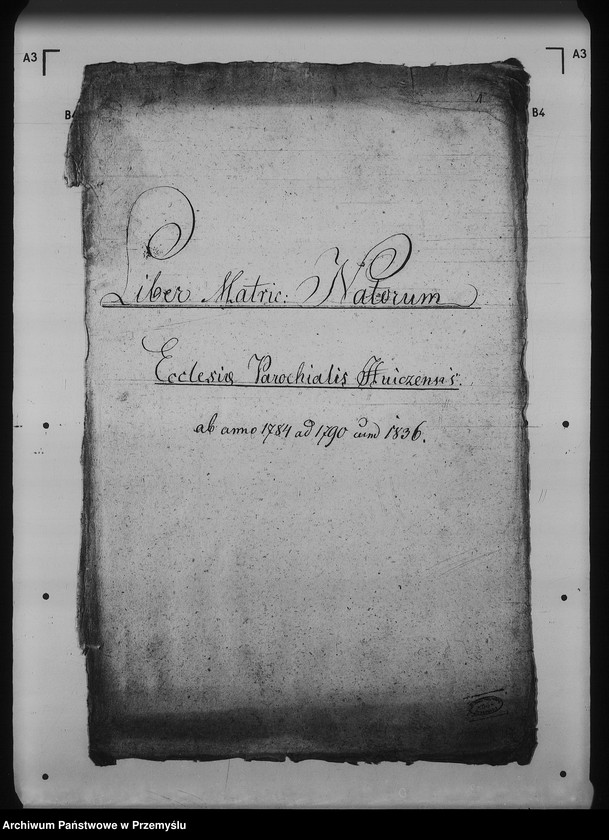 A3
A3
B4
B4
1
Liber Matric: Natorum
Ecclesiæ Parochialis Huiczensis.
ab anno 1784 ad 1790 cum 1836.
Archiwum Państwowe w Przemyślu